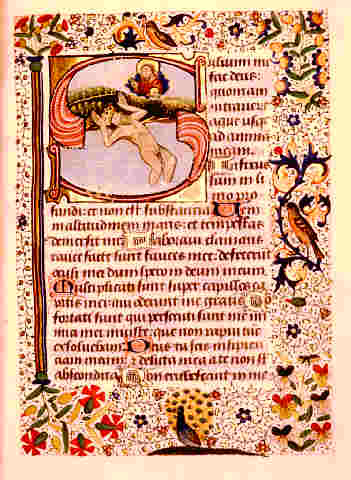 Salvum me
fac deus:
quoniam
intraverunt
aque usqz
ad animam
meam.
Infixus
sum in li
mo pro
fundi: et non est substantia. Veni in
altitudinem maris: et tempestas
demersit me. Laboravi clamans
rauce facte sunt fauces mee: defecerunt
oculi mei dum spero in deum meum.
Multiplicati sunt super capillos ca
pitis mei: qui oderunt me gratis. Con
fortati sunt qui persecuti sunt me ini
mici mei iniuste: que non rapui tunc
exsolvebam. Deus tu scis insipien
ciam meam: et delicta mea a te non st
abscondita. Non erubescant in me